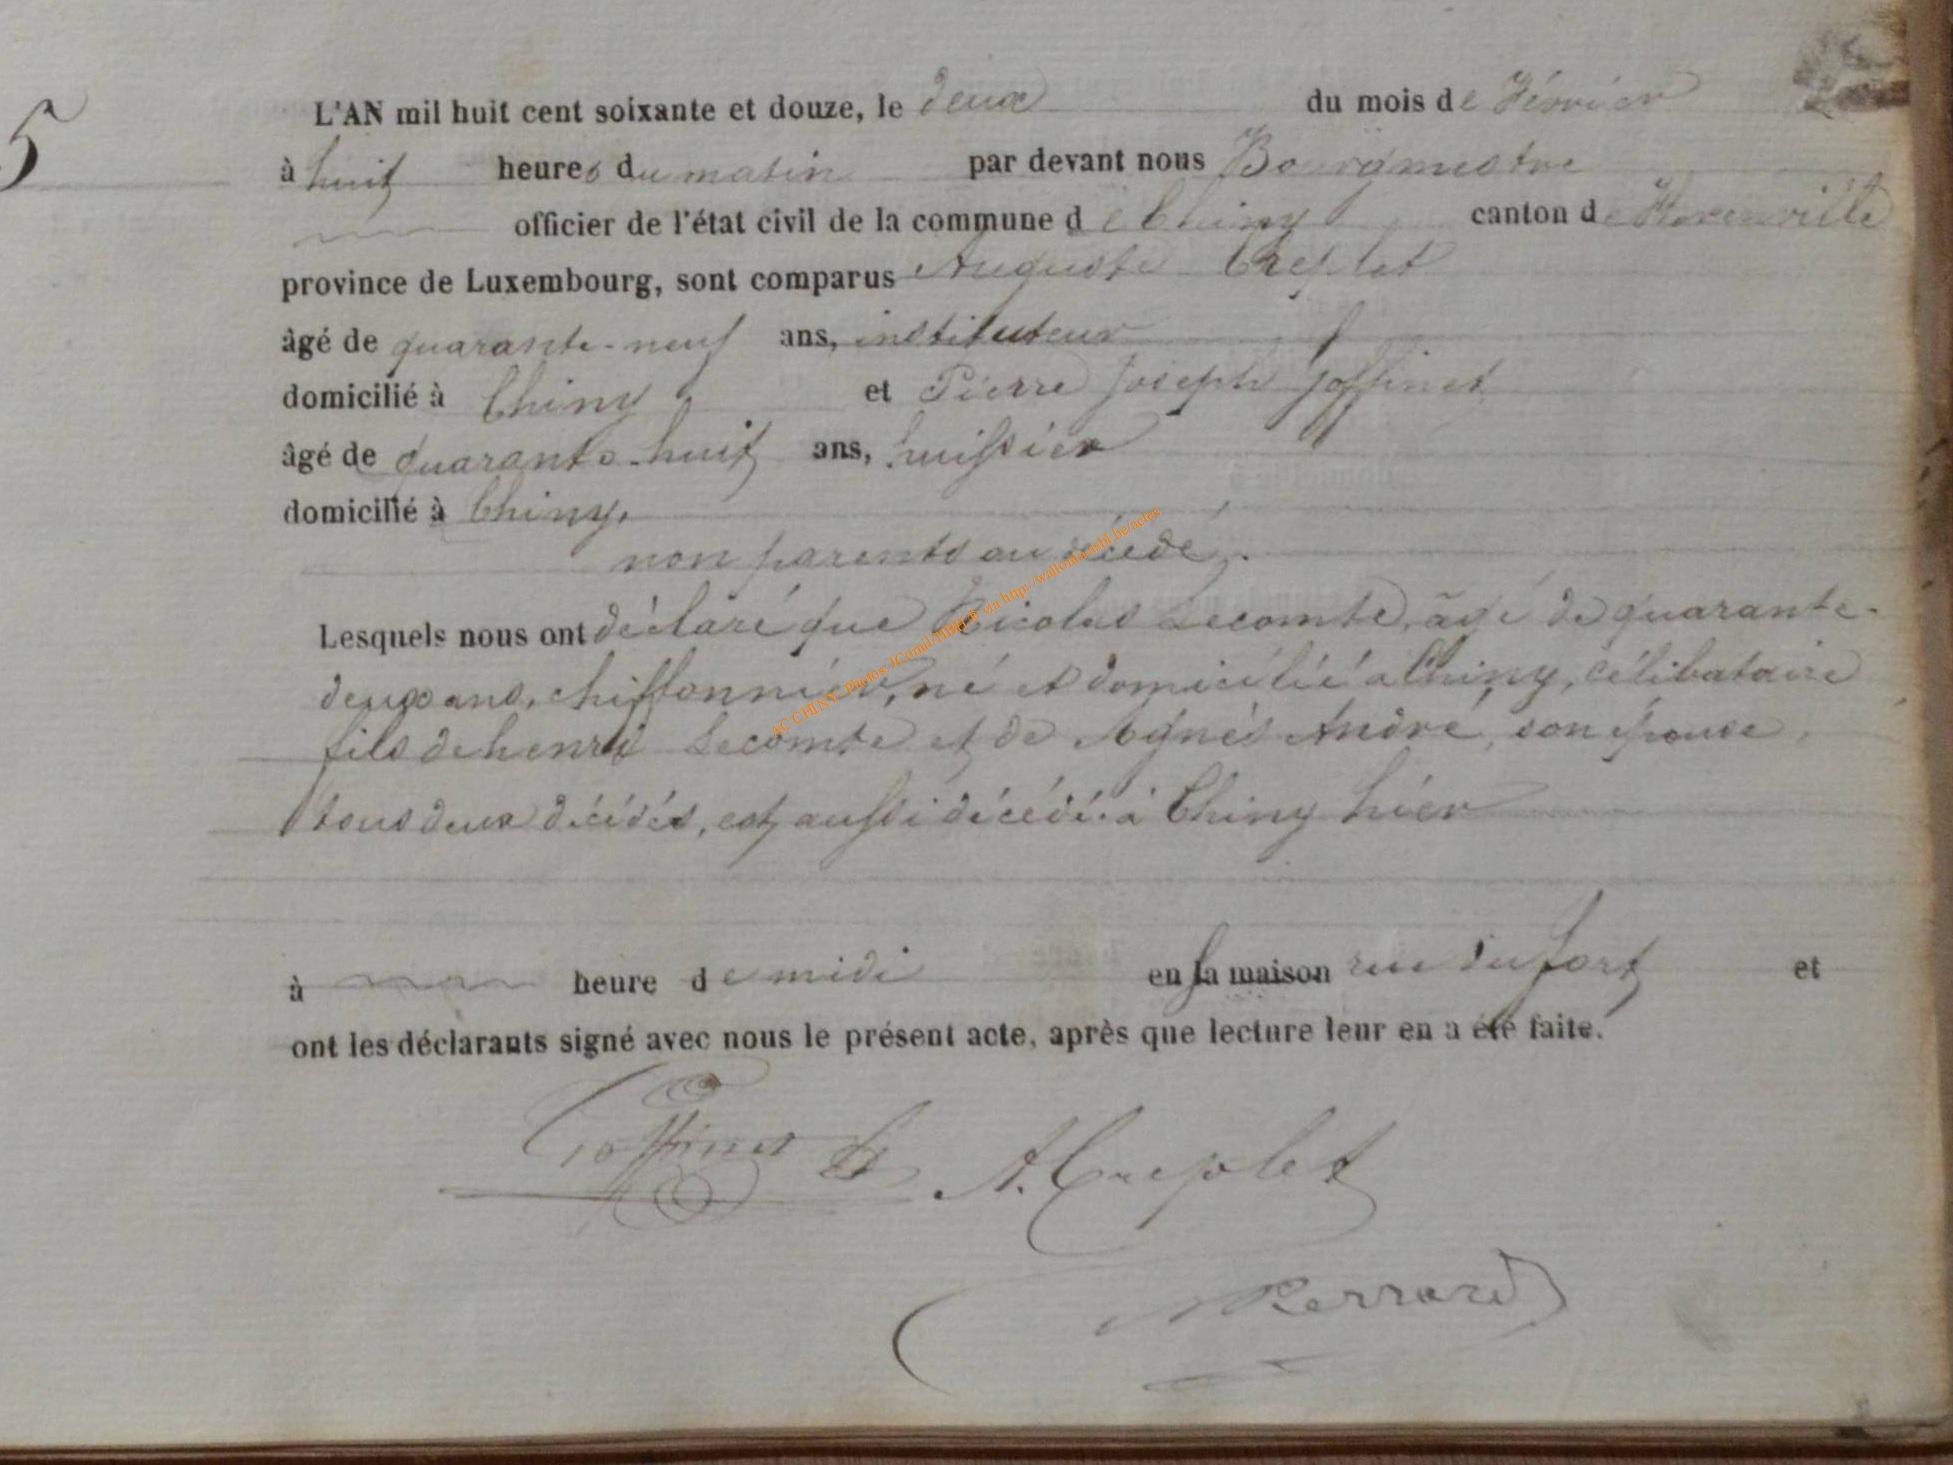 5
L'AN mil huit cent soixante et douze, le deux du mois de Février
à huit heures du matin par devant nous Bourgmestre
officier de l'état civil de la commune de Chiny canton de Florenville
province de Luxembourg, sont comparus Auguste Créplet
âgé de quarante-neuf ans, instituteur
domicilié à Chiny et Pierre Joseph Goffinet
âgé de quarante-huit ans, huissier
domicilié à Chiny,
non parents au décédé.
Lesquels nous ont déclaré que Nicolas Lecomte, âgé de quarante-
deux ans, chiffonnier, né et domicilié à Chiny, célibataire
fils de henri Lecomte et de Agnès André, son épouse,
tous deux décédés, est aussi décédé à Chiny hier
à heure de midi en sa maison rue du fort et
ont les déclarants signé avec nous le présent acte, après que lecture leur en a été faite.
Goffinet A. Creplet
Perrard